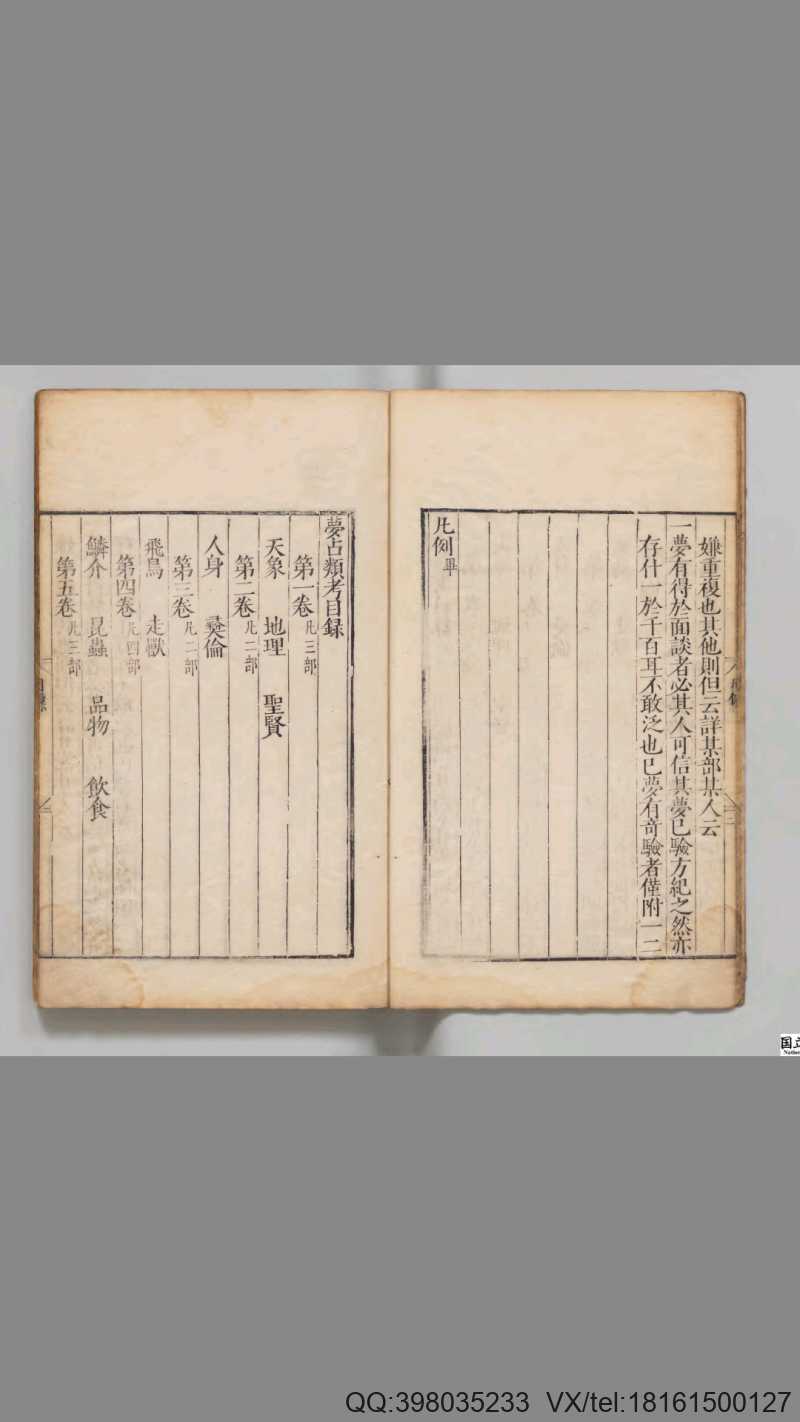 嫌重複也其他則但云詳某部某人云
一夢有得於面談者必其人可信其夢已驗方紀之然亦
存什一於千百耳不敢泛也已夢有奇驗者僅附一二
凡例畢
夢占類考目録
第一卷凡三部
天象 地理 聖賢
第二卷凡二部
人身 彜倫
第三卷凡二部
飛鳥 走獸
第四卷凡四部
鱗介 昆蟲 品物 飲食
第五卷凡三部
国立
QQ:398035233 VX/tel:18161500127